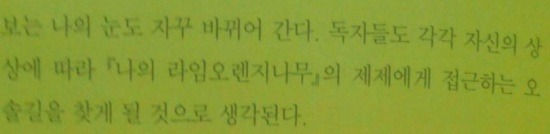 보는 나의 눈도 자꾸 바뀌어 간다. 독자들도 각각 자신의 상
상에 따라 『나의 라임오렌지나무』의 제제에게 접근하는 오
솔길을 찾게 될 것으로 생각된다.